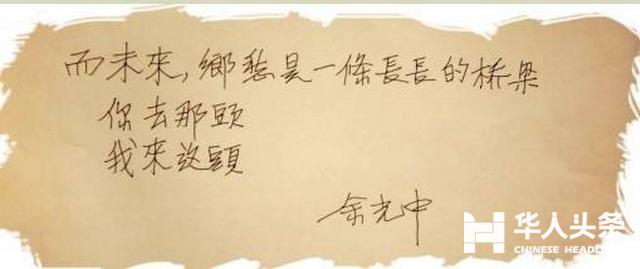 而未來，鄉愁是一條長長的桥梁
你去那頭
我來这頭
余光中
华人头条
CHINESE HEADLINE